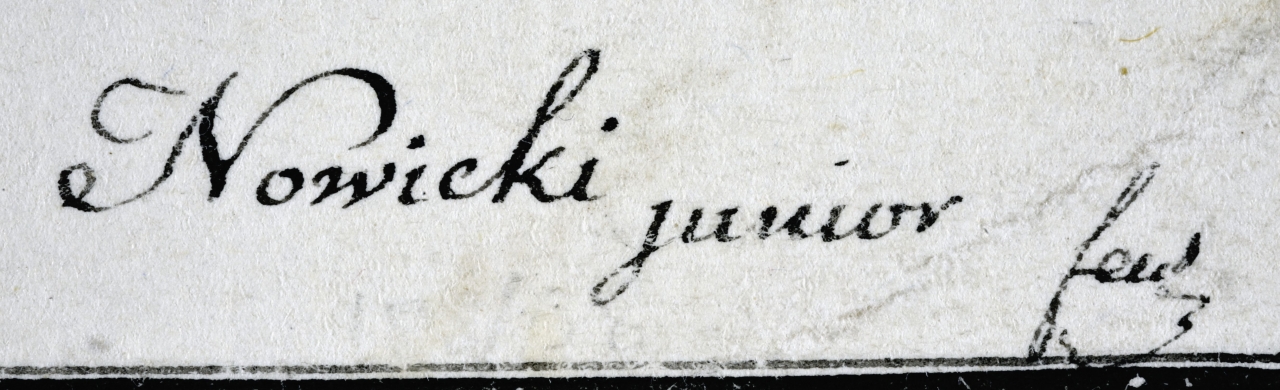 Nowicki junior fecit